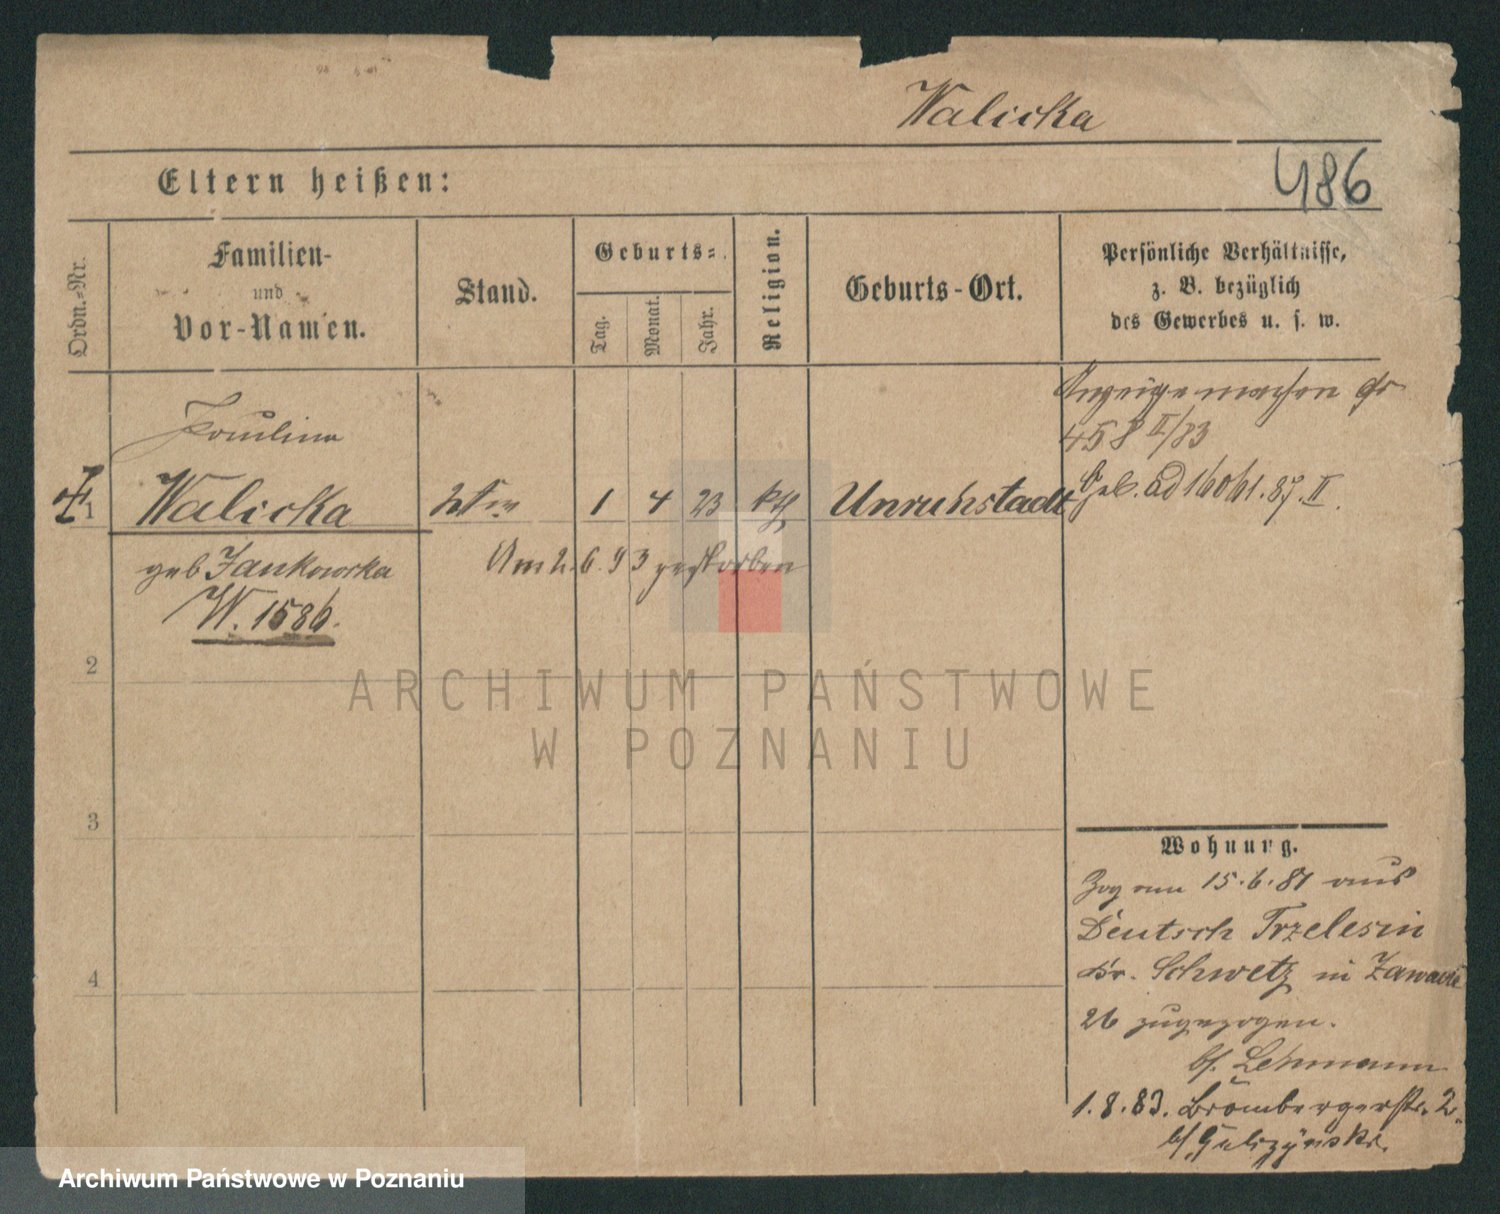 Walicka
Eltern heißen:
486
Ordn.=Nr.
Familien-
und
Vor-Namen.
Stand.
Geburts=
Tag.
Monat.
Jahr.
Religion.
Geburts-Ort.
Persönliche Verhältnisse,
z. B. bezüglich
des Gewerbes u. s. w.
Anzeige machen
458 II/83
Paulina
1 Walicka 1 4 23 kth Unruhstadt
ad 16061.87.II.
geb Jankowska
Am 2.6.93 gestorben
W. 1586.
2
3
4
Wohnung.
Zog am 15.6.81 aus
Deutsch Trzelesin
Kr. Schwetz in Zawade
26 zugezogen.
b/ Lehmann
1.8.83. Brombergerstr. 2.
b/
ARCHIWUM PAŃSTWOWE
W POZNANIU
Archiwum Państwowe w Poznaniu